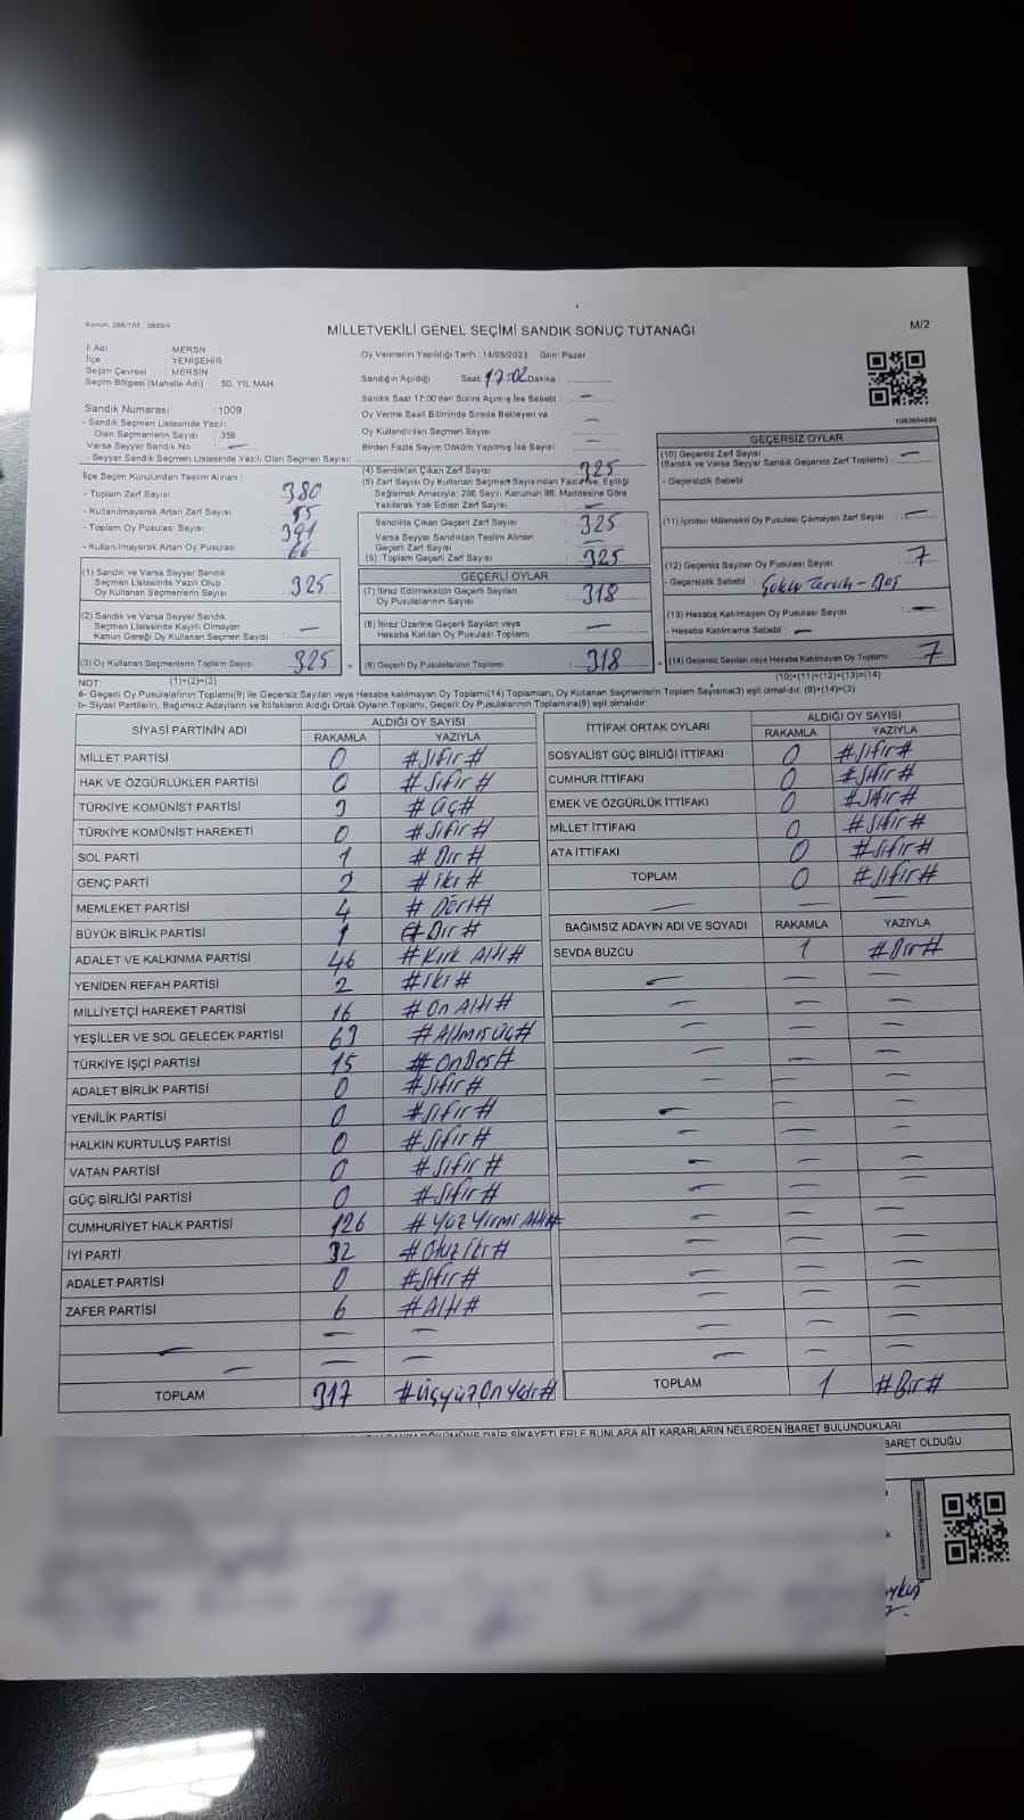 MİLLETVEKİLİ GENEL SEÇİMİ SANDIK SONUÇ TUTANAĞI
M/2
İl Adı : MERSİN
İlçe : YENİŞEHİR
Seçim Çevresi : MERSİN
Seçim Bölgesi (Mahalle Adı) : 50. YIL MAH
Oy Vermenin Yapıldığı Tarih : 14/05/2023 Gün: Pazar
Sandığın Açıldığı Saat 17:02 Dakika
Sandık Saat 17:00'den Sonra Açılmış İse Sebebi : —
Oy Verme Saati Bitiminde Sırada Bekleyen ve
Oy Kullandırılan Seçmen Sayısı —
Birden Fazla Sayım Döküm Yapılmış İse Sayısı —
Sandık Numarası : 1009
- Sandık Seçmen Listesinde Yazılı
Olan Seçmenlerin Sayısı : 356
Varsa Seyyar Sandık No : —
- Seyyar Sandık Seçmen Listesinde Yazılı Olan Seçmen Sayısı:
İlçe Seçim Kurulundan Teslim Alınan :
- Toplam Zarf Sayısı : 380
- Kullanılmayarak Artan Zarf Sayısı : 55
- Toplam Oy Pusulası Sayısı : 391
- Kullanılmayarak Artan Oy Pusulası : 66
(1) Sandık ve Varsa Seyyar Sandık
Seçmen Listesinde Yazılı Olup
Oy Kullanan Seçmenlerin Sayısı : 325
(2) Sandık ve Varsa Seyyar Sandık
Seçmen Listesinde Kayıtlı Olmayan
Kanun Gereği Oy Kullanan Seçmen Sayısı : —
(3) Oy Kullanan Seçmenlerin Toplam Sayısı : 325
NOT: (1)+(2)=(3)
(4) Sandıktan Çıkan Zarf Sayısı : 325
(5) Zarf Sayısı Oy Kullanan Seçmen Sayısından Fazla ise, Eşitliği
Sağlamak Amacıyla; 298 Sayılı Kanunun 98. Maddesine Göre
Yakılarak Yok Edilen Zarf Sayısı : —
Sandıkta Çıkan Geçerli Zarf Sayısı : 325
Varsa Seyyar Sandıktan Teslim Alınan
Geçerli Zarf Sayısı : —
(6) Toplam Geçerli Zarf Sayısı : 325
GEÇERLİ OYLAR
(7) İtiraz Edilmeksizin Geçerli Sayılan
Oy Pusulalarının Sayısı : 318
(8) İtiraz Üzerine Geçerli Sayılan veya
Hesaba Katılan Oy Pusulası Toplamı : —
(9) Geçerli Oy Pusulalarının Toplamı : 318
GEÇERSİZ OYLAR
(10) Geçersiz Zarf Sayısı : —
(Sandık ve Varsa Seyyar Sandık Geçersiz Zarf Toplamı)
- Geçersizlik Sebebi
(11) İçinden Milletvekili Oy Pusulası Çıkmayan Zarf Sayısı : —
(12) Geçersiz Sayılan Oy Pusulası Sayısı : 7
- Geçersizlik Sebebi : Çoklu Tercih - Boş
(13) Hesaba Katılmayan Oy Pusulası Sayısı : —
- Hesaba Katılmama Sebebi : —
(14) Geçersiz Sayılan veya Hesaba Katılmayan Oy Toplamı : 7
(10)+(11)+(12)+(13)=(14)
a- Geçerli Oy Pusulalarının Toplamı(9) ile Geçersiz Sayılan veya Hesaba katılmayan Oy Toplamı(14) Toplamları, Oy Kullanan Seçmenlerin Toplam Sayısına(3) eşit olmalıdır. (9)+(14)=(3)
b- Siyasi Partilerin, Bağımsız Adayların ve İttifakların Aldığı Ortak Oyların Toplamı, Geçerli Oy Pusulalarının Toplamına(9) eşit olmalıdır.
SİYASİ PARTİNİN ADI ALDIĞI OY SAYISI
RAKAMLA YAZIYLA
MİLLET PARTİSİ 0 #Sıfır#
HAK VE ÖZGÜRLÜKLER PARTİSİ 0 #Sıfır#
TÜRKİYE KOMÜNİST PARTİSİ 3 #Üç#
TÜRKİYE KOMÜNİST HAREKETİ 0 #Sıfır#
SOL PARTİ 1 #Bir#
GENÇ PARTİ 2 #İki#
MEMLEKET PARTİSİ 4 #Dört#
BÜYÜK BİRLİK PARTİSİ 1 #Bir#
ADALET VE KALKINMA PARTİSİ 46 #Kırk Altı#
YENİDEN REFAH PARTİSİ 2 #İki#
MİLLİYETÇİ HAREKET PARTİSİ 16 #On Altı#
YEŞİLLER VE SOL GELECEK PARTİSİ 63 #Altmış üç#
TÜRKİYE İŞÇİ PARTİSİ 15 #OnBeş#
ADALET BİRLİK PARTİSİ 0 #Sıfır#
YENİLİK PARTİSİ 0 #Sıfır#
HALKIN KURTULUŞ PARTİSİ 0 #Sıfır#
VATAN PARTİSİ 0 #Sıfır#
GÜÇ BİRLİĞİ PARTİSİ 0 #Sıfır#
CUMHURİYET HALK PARTİSİ 126 #Yüz Yirmi Altı#
İYİ PARTİ 32 #Otuz iki#
ADALET PARTİSİ 0 #Sıfır#
ZAFER PARTİSİ 6 #Altı#
TOPLAM 317 #ÜçyüzOnYedi#
İTTİFAK ORTAK OYLARI ALDIĞI OY SAYISI
RAKAMLA YAZIYLA
SOSYALİST GÜÇ BİRLİĞİ İTTİFAKI 0 #Sıfır#
CUMHUR İTTİFAKI 0 #Sıfır#
EMEK VE ÖZGÜRLÜK İTTİFAKI 0 #Sıfır#
MİLLET İTTİFAKI 0 #Sıfır#
ATA İTTİFAKI 0 #Sıfır#
TOPLAM 0 #Sıfır#
BAĞIMSIZ ADAYIN ADI VE SOYADI RAKAMLA YAZIYLA
SEVDA BUZCU 1 #Bir#
TOPLAM 1 #Bir#
ŞİKAYETLERLE BUNLARA AİT KARARLARIN NELERDEN İBARET BULUNDUKLARI
BARET OLDUĞU